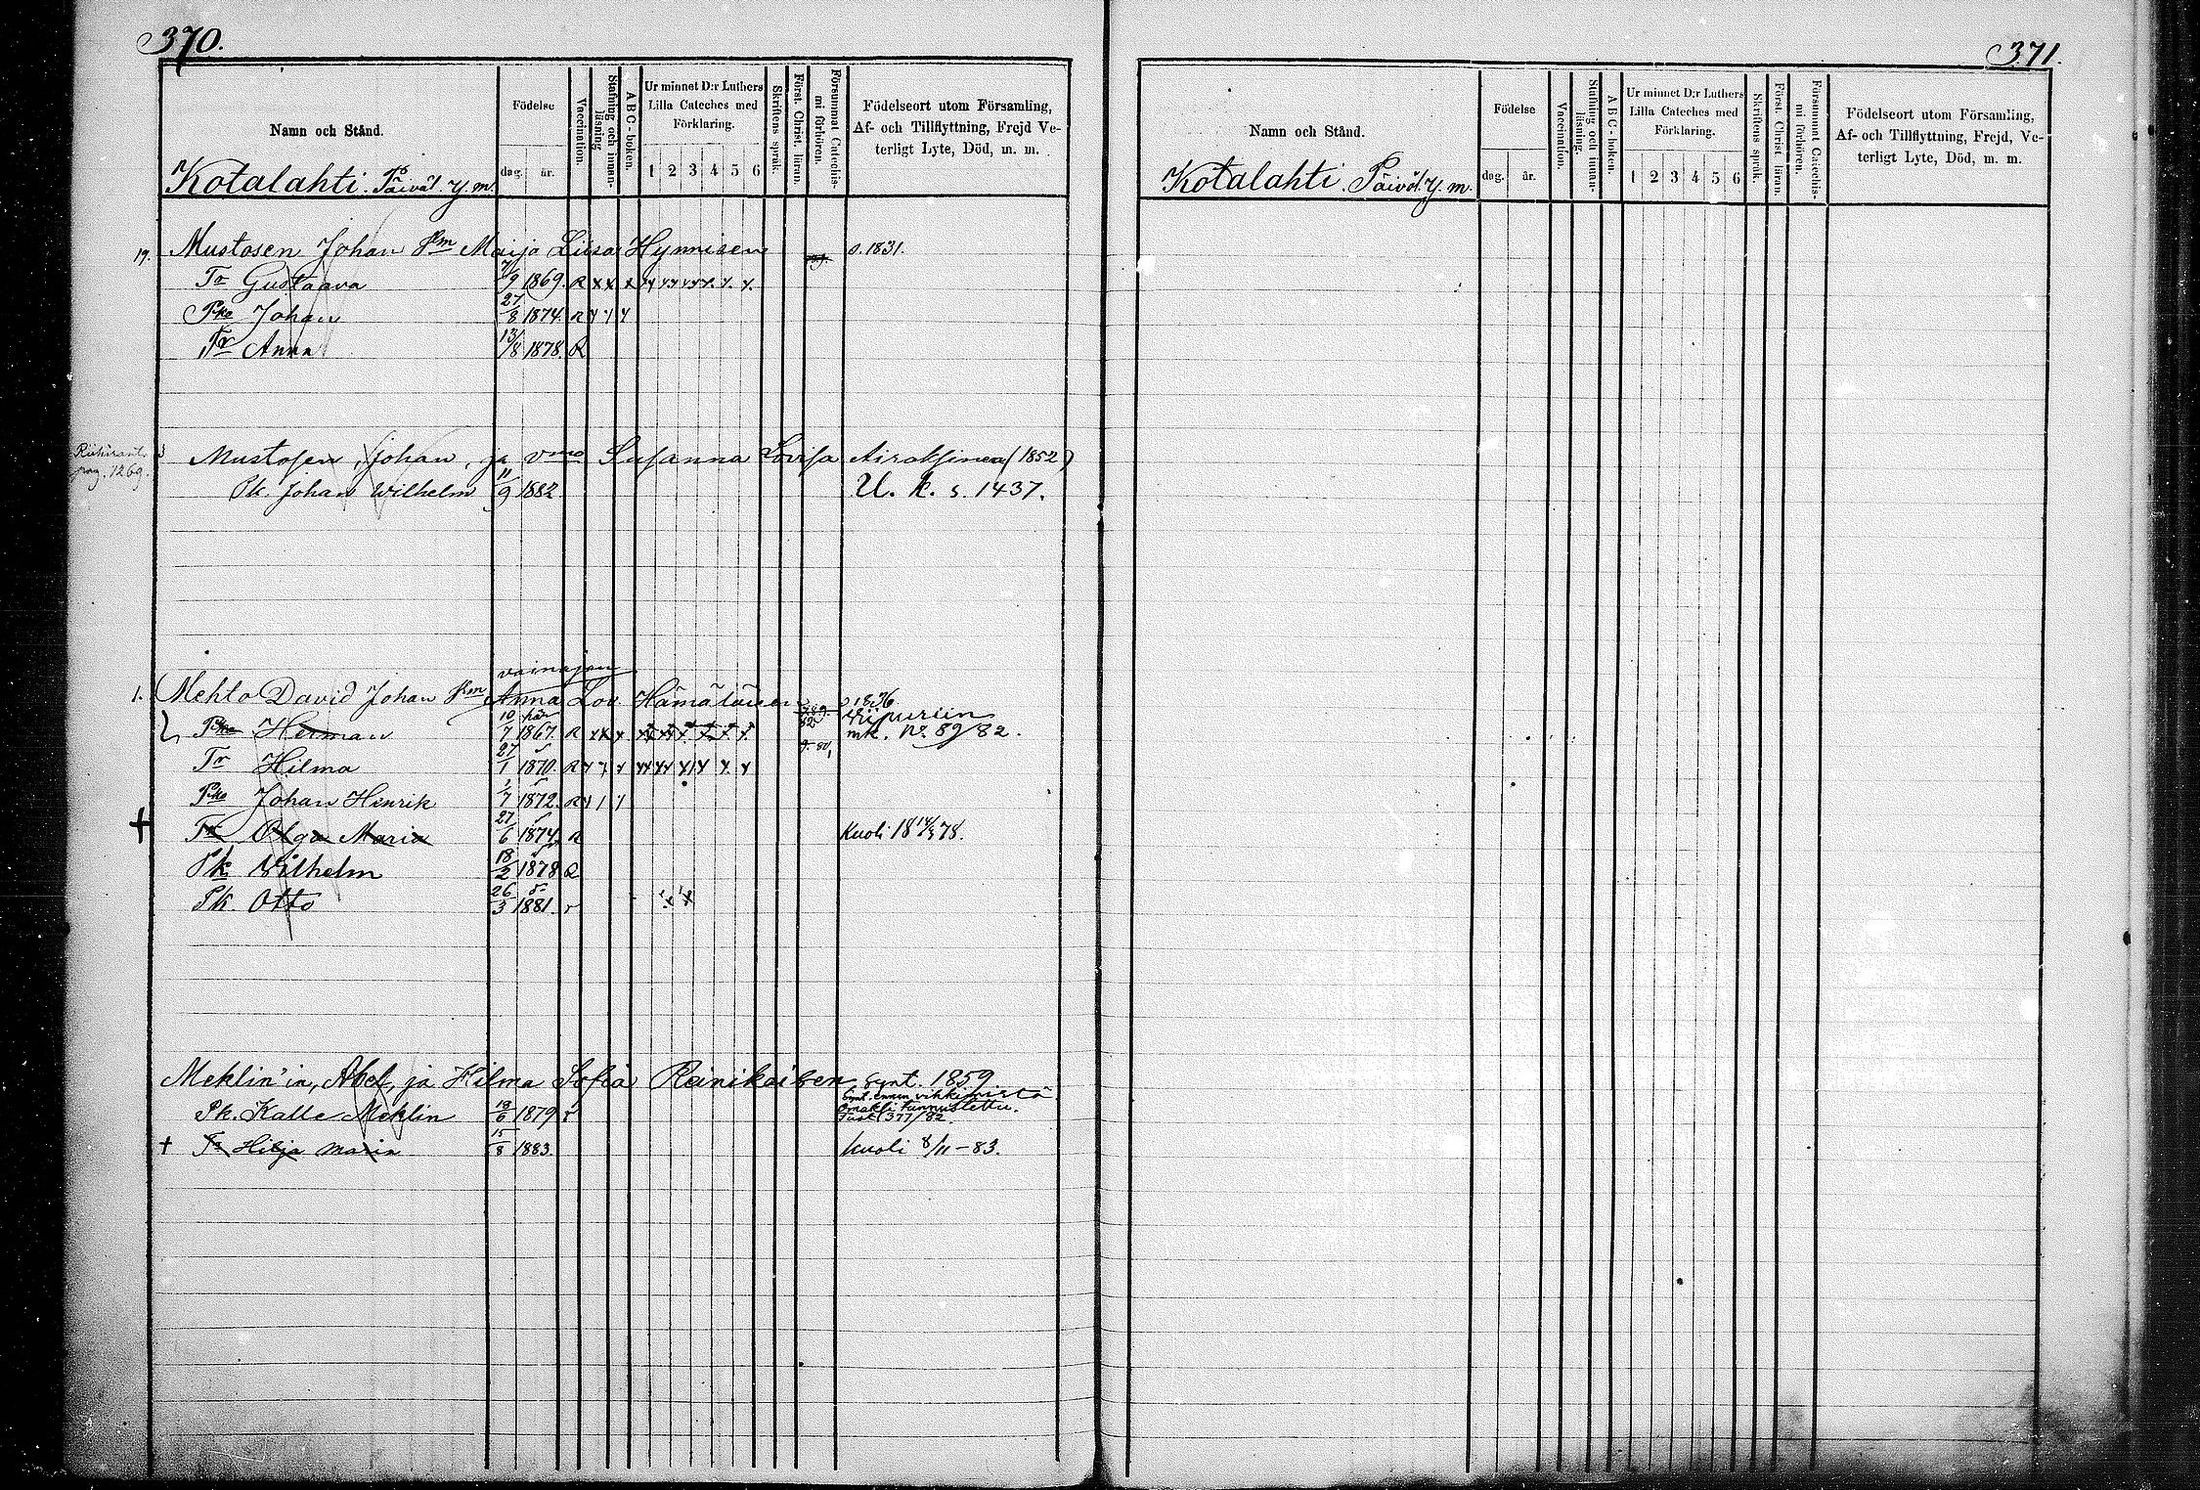 370.
Namn och Stånd.
Födelse
dag. år.
Vaccination.
Stafning och innan-läsning
A B C-boken.
Ur minnet D:r Luthers Lilla Cateches med Förklaring.
1 2 3 4 5 6
Skriftens språk.
Först. Christ. läran.
Försummat Catechis-mi förhören.
Födelseort utom Församling, Af- och Tillflyttning, Frejd Ve-terligt Lyte, Död, m. m.
Kotalahti. Päiväl. y. m.
19. Mustosen Johan Hm Maija Liisa Hynnisen s. 1831.
Tr Gustaava 7/9 1869. R x x x
Pka Johan 27/8 1874. R
Tr Anna 13/8 1878. R
pag. 1269.
Mustosen, Johan, ja vmo Susanna Lovisa Airaksinen (1852)
Pk. Johan Wilhelm 11/9 1882. U. k. s. 1437.
vainajan
1. Mehto David Johan Hm Anna Lov. Hämäläisen s. 1836
Pka Herman 10/7 1867. R Wipuriin
mk. No. 89/82.
Tr Hilma 27/1 1870. R
Pka Johan Henrik 1/7 1872. R
+ Tr Olga Maria 27/6 1874 R Kuoli 18 14/3 78.
Pk Wilhelm 18/2 1878 R
Pk. Otto 26/3 1881. r
Meklin'in, Abel, ja Hilma Sofia Reinikaisen, synt. 1859.
synt. ennen vihkimistä
Pk. Kalle Meklin 18/6 1879 r omaksi tunnustettu.
377/82.
+ Tr Hilja Maria 15/8 1883. kuoli 8/11-83.
371.
Namn och Stånd.
Födelse
dag. år.
Vaccination.
Stafning och innan-läsning.
A B C-boken.
Ur minnet D:r Luthers Lilla Cateches med Förklaring.
1 2 3 4 5 6
Skriftens språk.
Först. Christ läran.
Försummat Catechis-mi förhören.
Födelseort utom Församling, Af- och Tillflyttning, Frejd, Ve-terligt Lyte, Död, m. m.
Kotalahti. Päiväl. y. m.